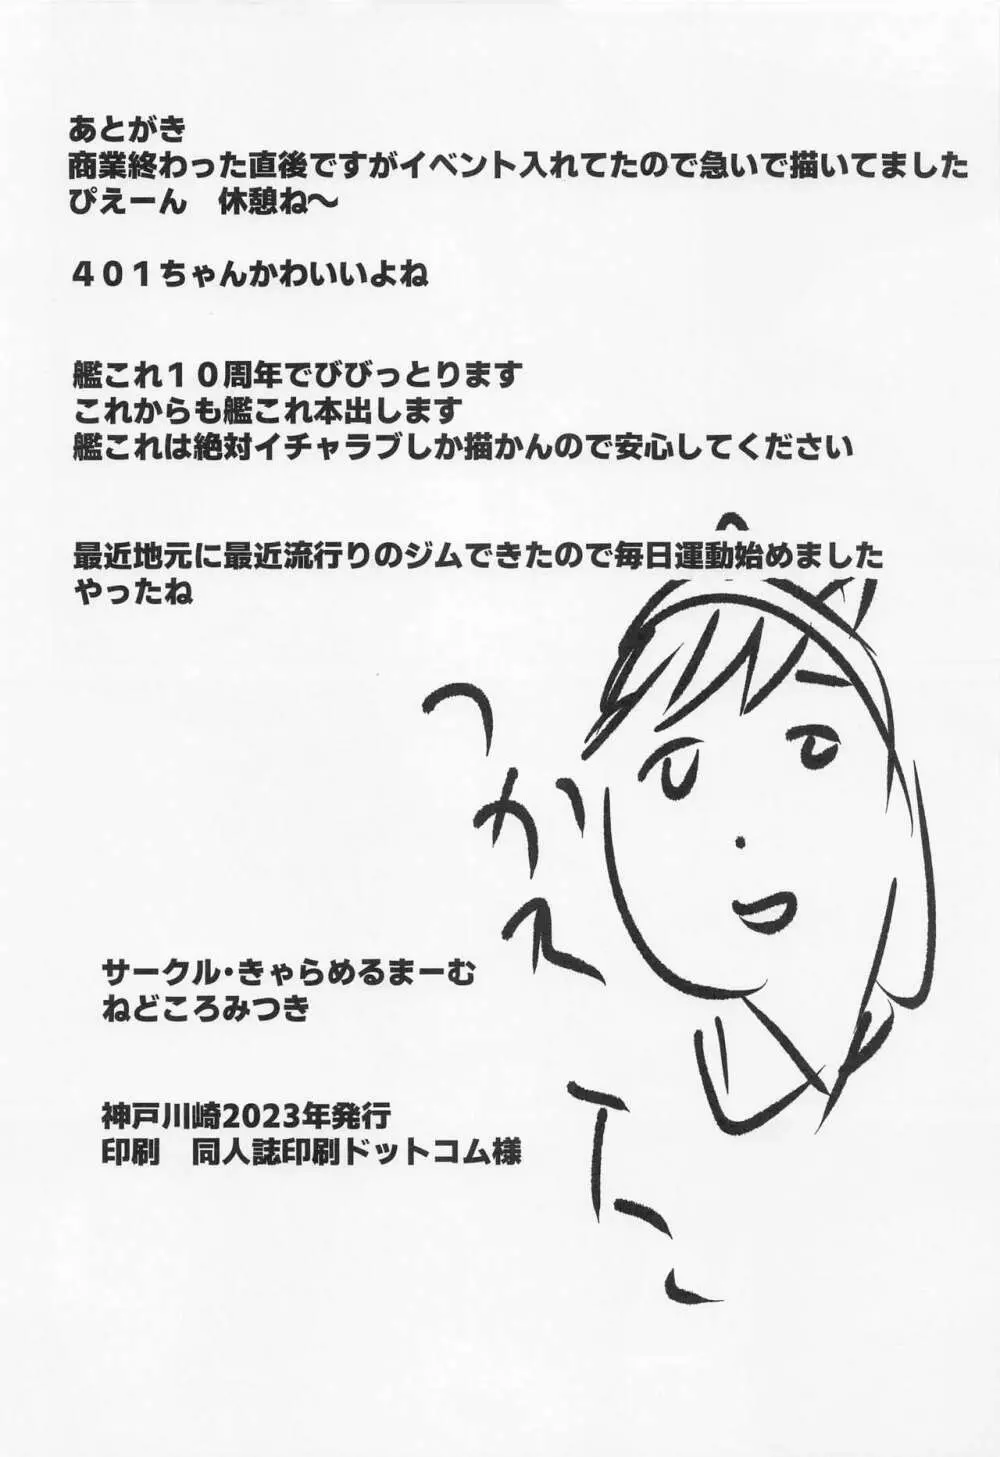 あとがき
商業終わった直後ですがイベント入れてたので急いで描いてました
ぴえーん　休憩ね～
４０１ちゃんかわいいよね
艦これ１０周年でびびっとります
これからも艦これ本出します
艦これは絶対イチャラブしか描かんので安心してください
最近地元に最近流行りのジムできたので毎日運動始めました
やったね
つかえ
サークル・きゃらめるまーむ
ねどころみつき
神戸川崎2023年発行
印刷　同人誌印刷ドットコム様